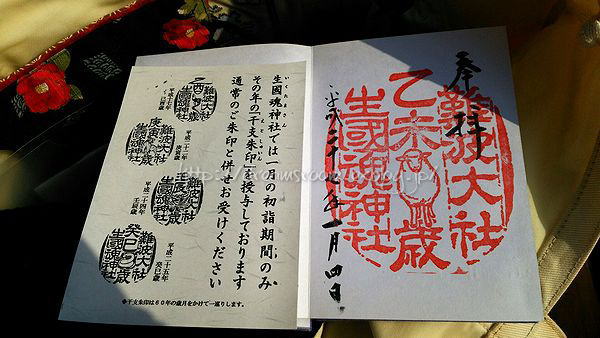 奉拝
難波大社
乙未歳
生國魂神社
平成二十七年一月四日
いくたまさん
生國魂神社では一月の初詣期間のみ
えとしゅいん
その年の「干支朱印」を授与しております
通常のご朱印と併せお受けください
難波大社
生國魂神社
平成十七年
難波大社
庚寅歳
生國魂神社
平成二十二年
庚寅歳
難波大社
壬辰歳
生國魂神社
平成二十四年
壬辰歳
難波大社
癸巳歳
生國魂神社
平成二十五年
癸巳歳
※干支朱印は60年の歳月をかけて一巡りします。